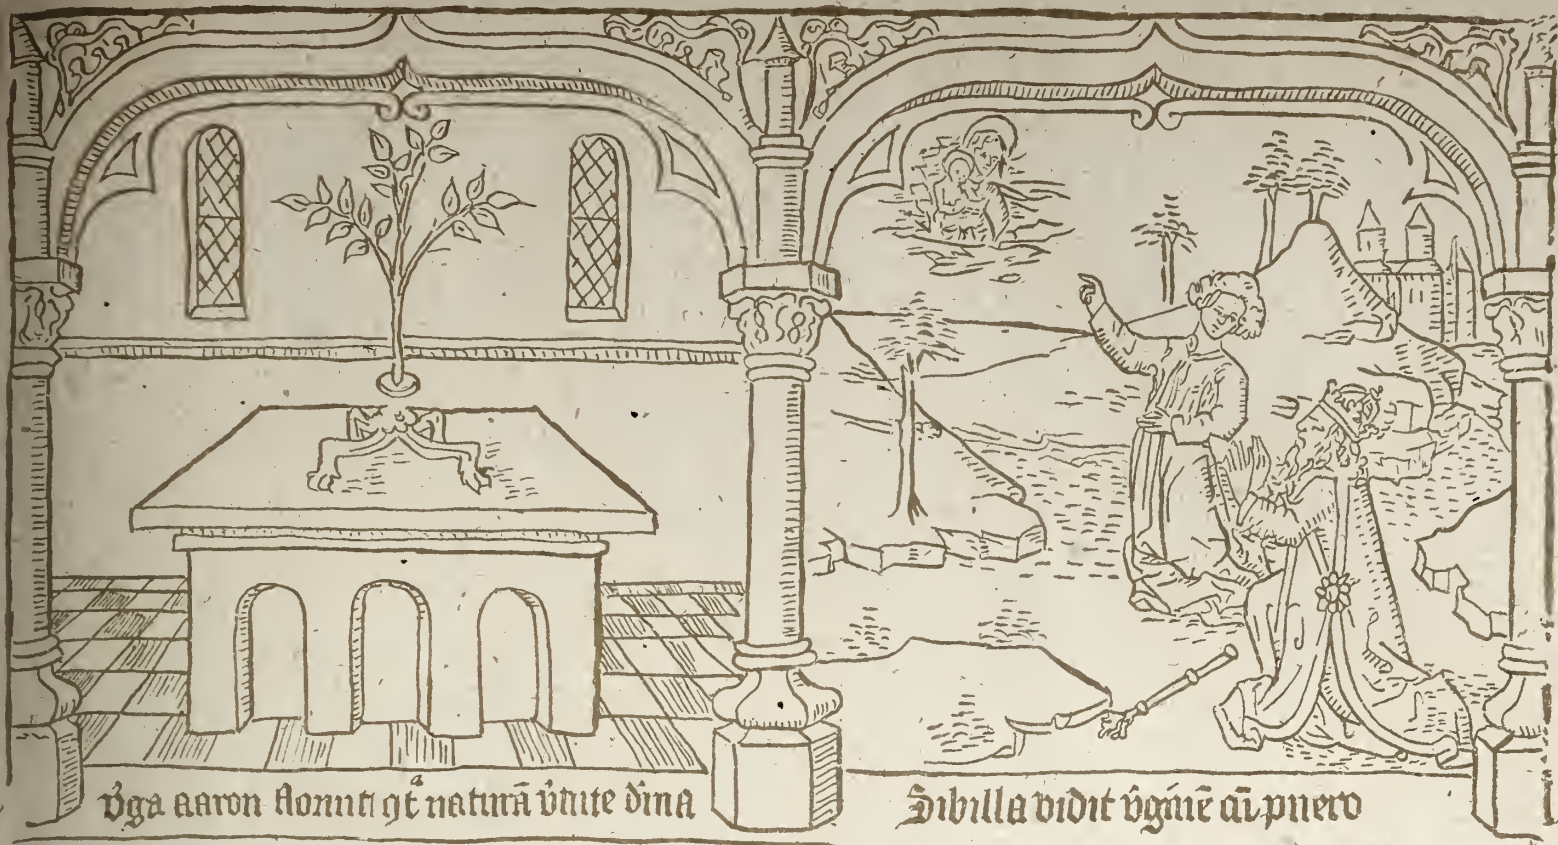 v̄ga aaron floruit 9t͛ naturā v̄tute diīna
Sibilla vidit v̄ginē cū puero